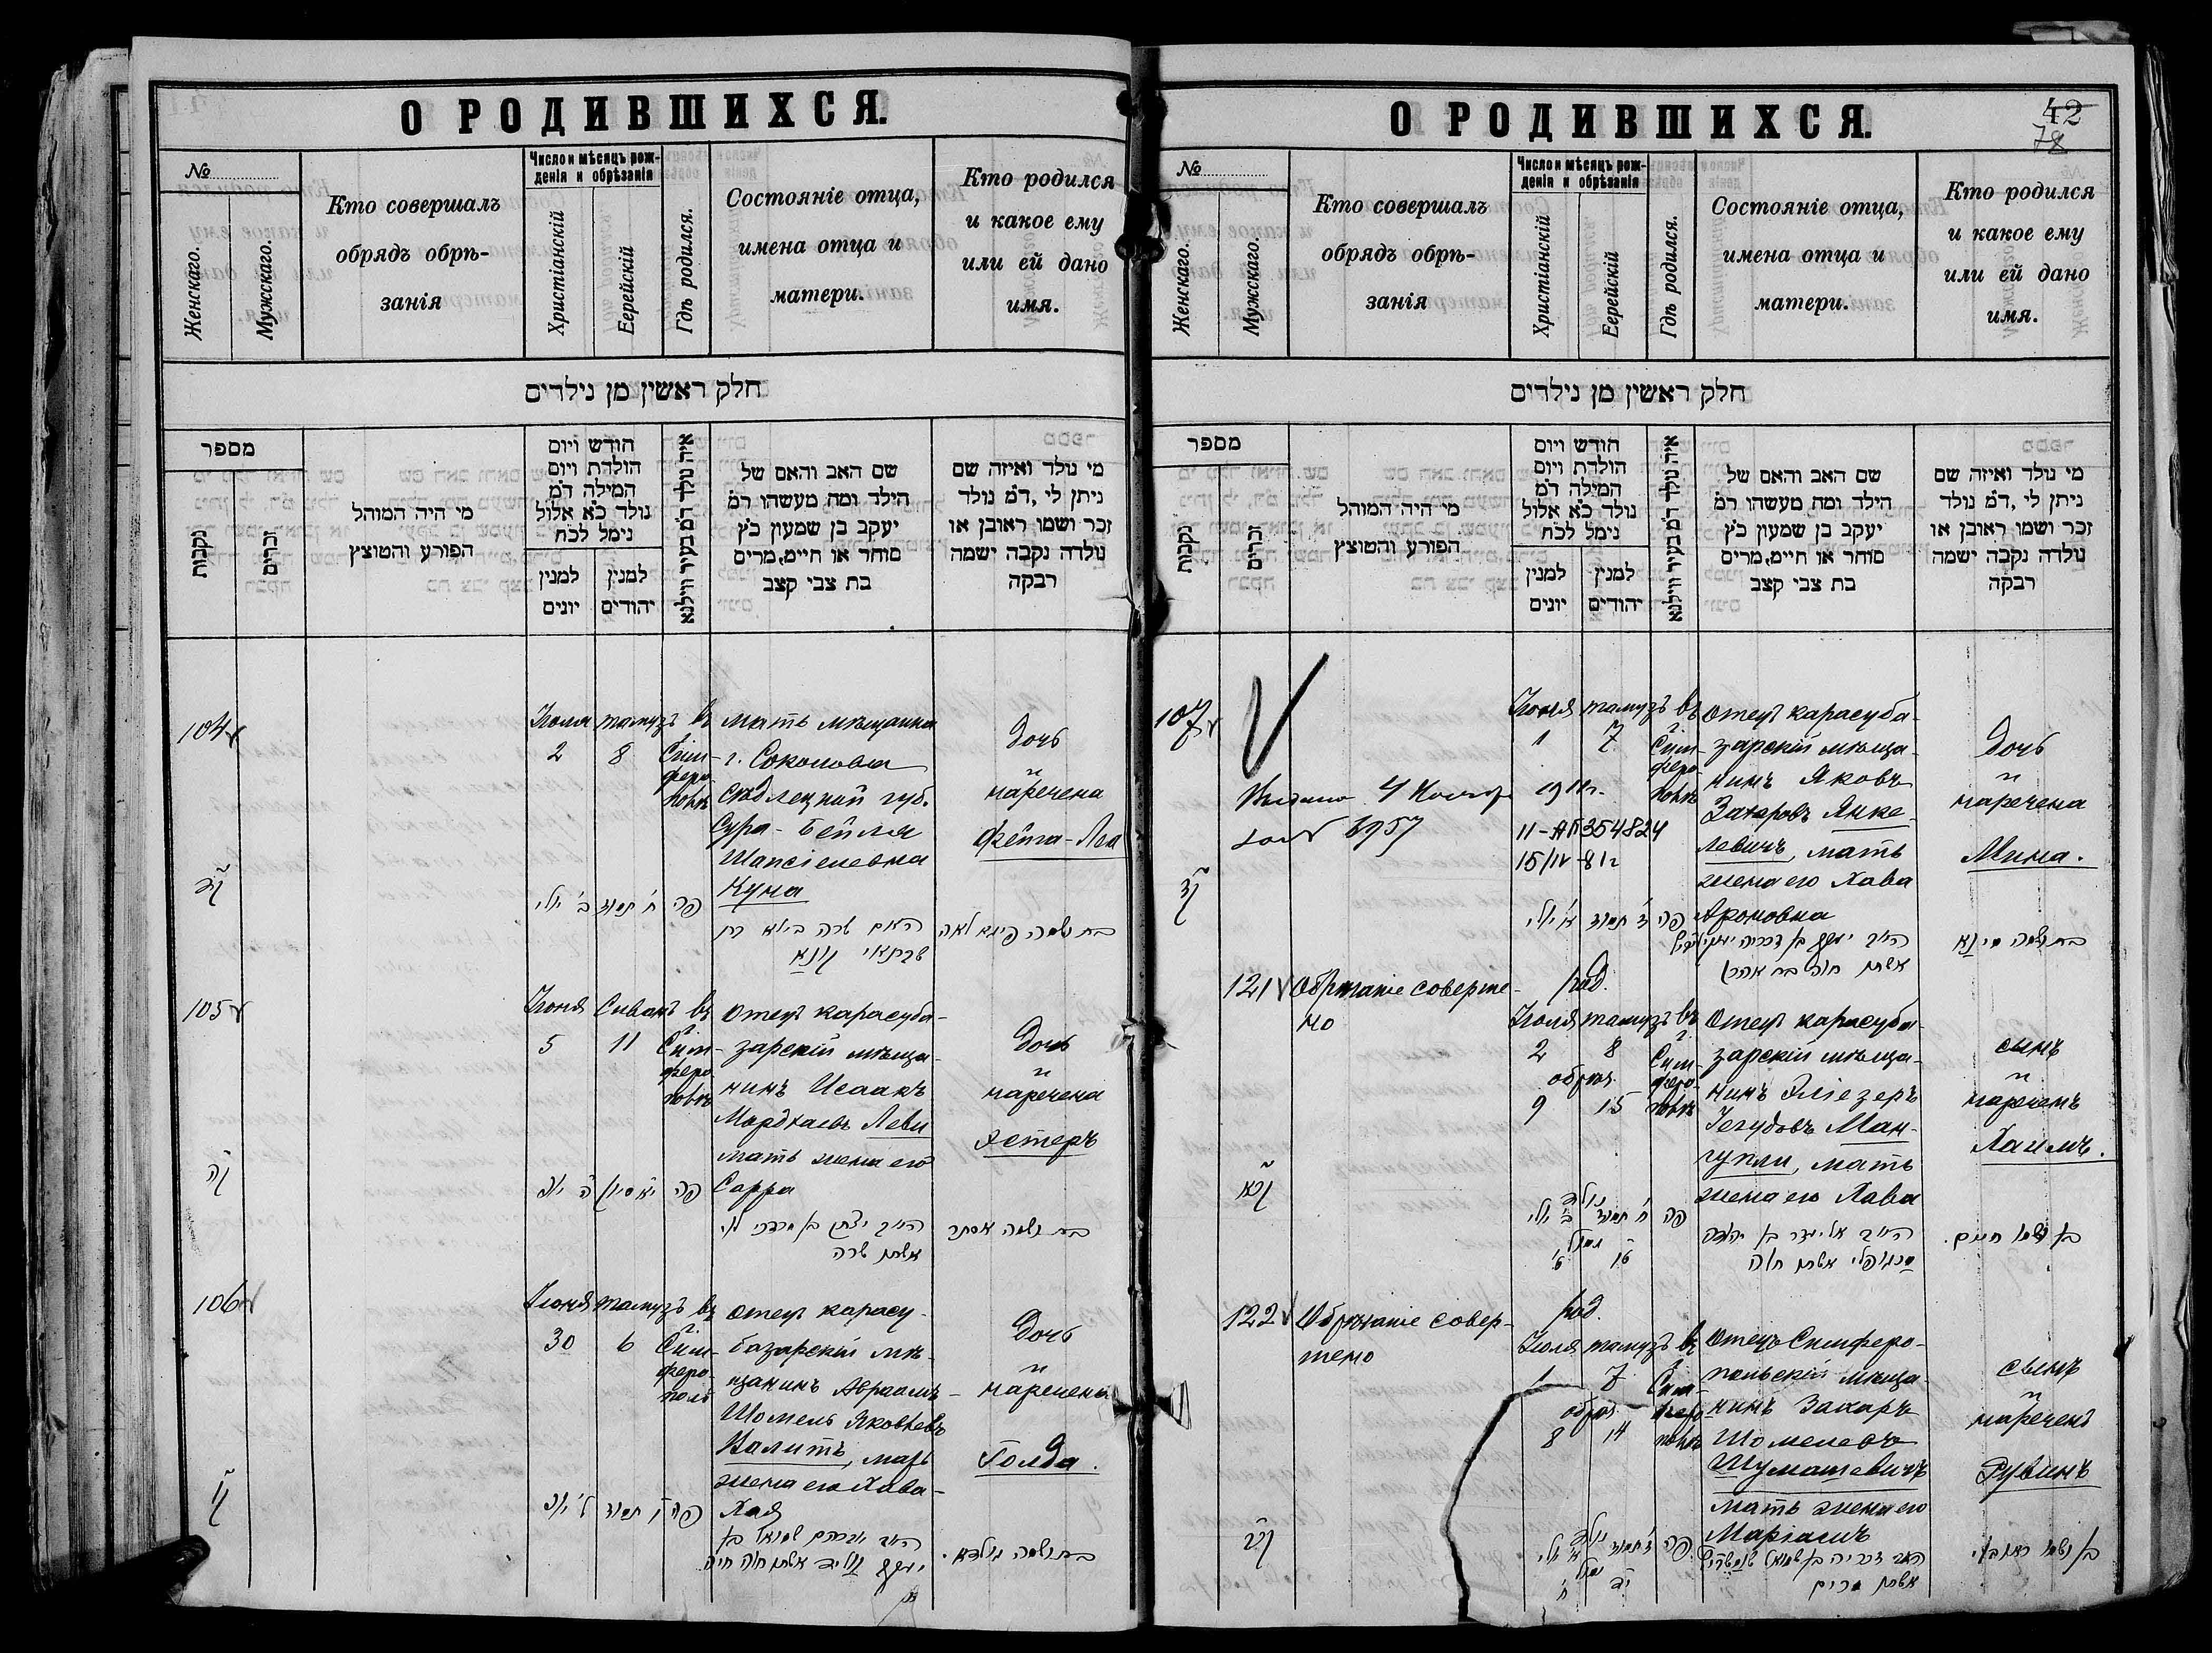 О РОДИВШИХСЯ.
№
Женскаго.
Мужскаго.
Кто совершалъ
обрядъ обрѣ-
занія
Число и мѣсяцъ рож-
денія и обрѣзанія
Христіанскій
Еерейскій
Гдѣ родился.
Состояніе отца,
имена отца и
матери.
Кто родился
и какое ему
или ей дано
имя.
חלק ראשין מן נילדים
מספר
נקבות
זכרים
מי היה המוהל
הפורע והמוצץ
חודש ויום
הולדת ויום
המילה דמ
נולד כא אלול
נימל לכח
למנין
יונים
למנין
יהודים
איה נולד דמ בעיר ווילנא
שם האב והאם של
הילד ומה מעשהו דמ
יעקב בן שמעון כץ
סוחר או חיים, מרים
בת צבי קצב
מי נולד ואיזה שם
ניתן לי, דמ נולד
זכר ושמו ראובן או
נולדה נקבה ישמה
רבקה
104
Іюля тамузъ въ
2 8
г. Сим-
феро-
полѣ
мать мѣщанка
г. Соколова
Сѣдлецкой губ.
Сура-Бейля
Шапсіелевна
Куна
Дочь
и
наречена
Фейга-Леа
פה ח תמוז ב יולי
האם שרה ביילא בת
שבתאי קונא
בת ושמה פייגא לאה
105
Іюня Сиванъ въ
5 11
г. Сим-
феро-
полѣ
Отецъ карасуба-
зарскій мѣща-
нинъ Исаакъ
Мордхаевъ Леви
мать жена его
Сарра
Дочь
и
наречена
Эстеръ
האב יצחק בן מרדכי לוי
אשתו שרה
בת ושמה אסתר
106
Іюня тамузъ въ
30 6
г. Сим-
феро-
поль
Отецъ карасу-
базарскій мѣ-
щанинъ Авраамъ-
Шомель Яковлевъ
Валитъ, мать
жена его Хава-
Хая
Дочь
и
наречена
Голда.
האב אברהם שמואל בן
יעקב וואליט אשתו חוה חיה
בת ושמה גולדא.
О РОДИВШИХСЯ.
42
78
№
Женскаго.
Мужскаго.
Кто совершалъ
обрядъ обрѣ-
занія
Число и мѣсяцъ рож-
денія и обрѣзанія
Христіанскій
Еерейскій
Гдѣ родился.
Состояніе отца,
имена отца и
матери.
Кто родился
и какое ему
или ей дано
имя.
חלק ראשין מן נילדים
מספר
נקבות
זכרים
מי היה המוהל
הפורע והמוצץ
חודש ויום
הולדת ויום
המילה דמ
נולד כא אלול
נימל לכח
למנין
יונים
למנין
יהודים
איה נולד דמ בעיר ווילנא
שם האב והאם של
הילד ומה מעשהו דמ
יעקב בן שמעון כץ
סוחר או חיים, מרים
בת צבי קצב
מי נולד ואיזה שם
ניתן לי, דמ נולד
זכר ושמו ראובן או
נולדה נקבה ישמה
רבקה
107
Іюля тамузъ въ
1 7
г. Сим-
феро-
полѣ
1911г.
11-АП 354824
15/IV-81г
Отецъ карасуба-
зарскій мѣща-
нинъ Яковъ
Захаровъ Янке-
левичъ, мать
жена его Хава
Ароновна
Дочь
и
наречена
Мина.
פה ז תמוז א יולי
אשתו חוה בת אהרן
בת ושמה מינא
121
Обрѣзаніе соверше-
но
род.
Іюля тамузъ въ
2 8
обрѣз.
9 15
г. Сим-
феро-
полѣ
Отецъ карасуба-
зарскій мѣща-
нинъ Эліезеръ
Іегудовъ Ман-
гупли, мать
жена его Хава
сынъ
и
нареченъ
Хаимъ.
פה ח תמוז ב יולי
האב אליעזר בן יהודה
מנגופלי אשתו חוה
בן ושמו חיים.
122
Обрѣзаніе совер-
шено
род.
Іюля тамузъ въ
1 7
обрѣз.
8 14
г. Сим-
феро-
полѣ
Отецъ Симферо-
польскій мѣща-
нинъ Захаръ
Шомелевъ
Шумашевичъ
мать жена его
Маріамъ
сынъ
и
нареченъ
Рувинъ
פה ז תמוז א יולי
אשתו מרים
בן ושמו ראובן